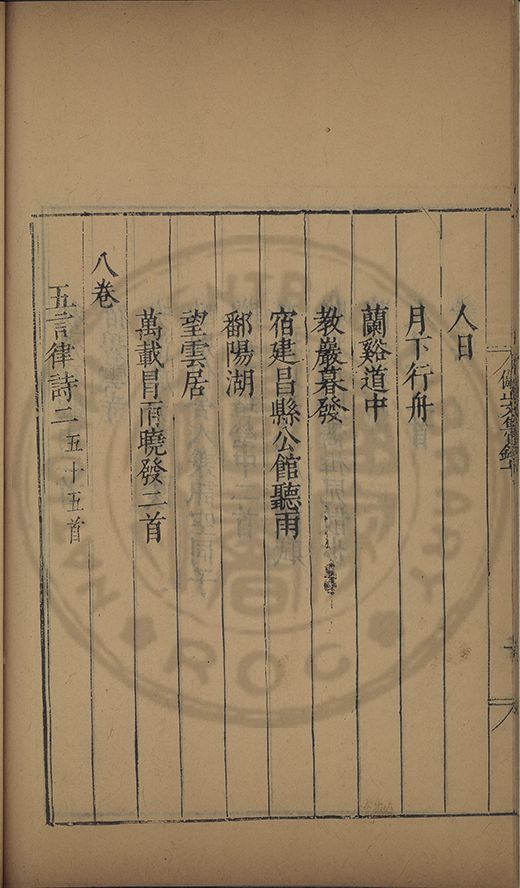 人日
月下行舟
蘭谿道中
教嚴暮發
宿建昌縣公館聽雨
鄱陽湖
望雲居
萬載冒雨曉發二首
八卷
五言律詩二 五十五首